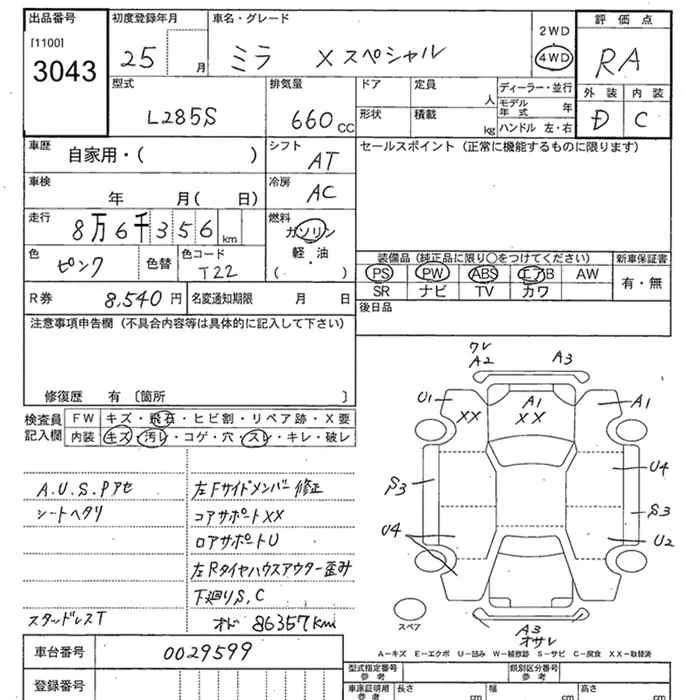 出品番号
[1100]
3043
初度登録年月
25 月
車名・グレード
ミラ Xスペシャル
2WD
4WD
評価点
RA
外装 内装
D C
型式
L285S
排気量
660 CC
ドア
定員
人
形状
積載
kg
ディーラー・並行
モデル年式 年
ハンドル 左・右
車歴
自家用・( )
シフト
AT
セールスポイント (正常に機能するものに限ります)
車検
年 月( 日)
冷房
AC
走行
8万6千356 km
燃料
ガソリン
軽・油
( ・ )
色
ピンク
色替
色コード
T22
装備品 (純正品に限り○をつけてください)
新車保証書
PS PW ABS エアB AW
SR ナビ TV カワ
有・無
R券
8,540 円
名変通知期限 月 日
後日品
注意事項申告欄 (不具合内容等は具体的に記入して下さい)
修復歴 有 〔箇所 〕
検査員記入欄
FW キズ・飛石・ヒビ割・リペア跡・X要
内装 キズ・汚レ・コゲ・穴・スレ・キレ・破レ
A.U.S.Pアセ
シートヘタリ
スタッドレスT
左Fサイドメンバー修正
コアサポートXX
ロアサポートU
左Rタイヤハウスアウター歪み
下廻りS,C
オド 86357kmi
ワレ
A2
A3
U1
XX
A1
XX
A1
S3
U4
S3
U4
U2
スペア
A3
オサレ
A−キズ E−エクボ U−凹み W−補修跡 S−サビ C−腐食 XX−取替済
車台番号
0029599
登録番号
型式指定番号
参考
類別区分番号
参考
車庫証明用
参考
長さ cm
幅 cm
高さ cm